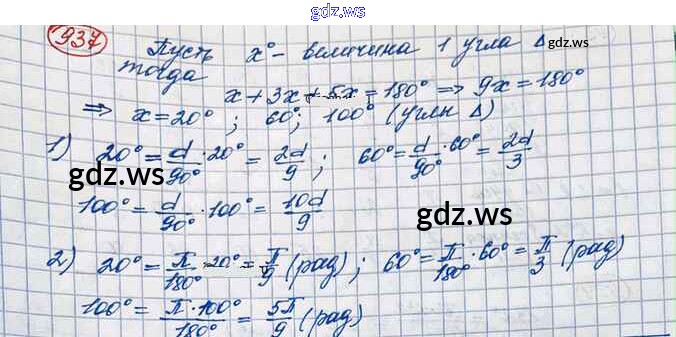 gdz.ws
937) Пусть x° – величина 1 угла Δ
тогда
x + 3x + 5x = 180° => 9x = 180°
=> x = 20° ; 60°; 100° (углы Δ)
1) 20° = d/90° · 20° = 2d/9 ; 60° = d/90° · 60° = 2d/3
gdz.ws
100° = d/90° · 100° = 10d/9
gdz.ws
2) 20° = π/180° · 20° = π/9 (рад) ; 60° = π/180° · 60° = π/3 (рад)
100° = π · 100°/180° = 5π/9 (рад)
gdz.ws